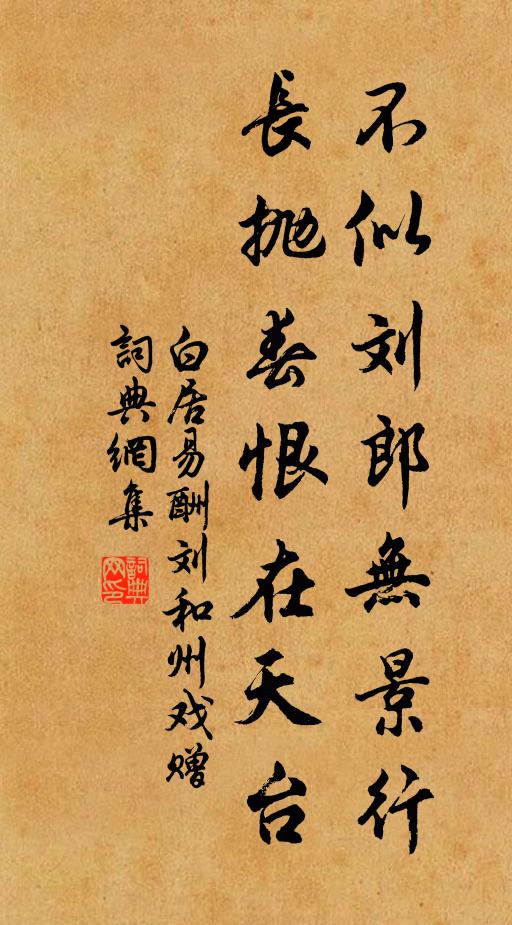 不似刘郎無景行
長抛春恨在天台
白居易酬刘和州戏赠
詞典網集
詞典网印